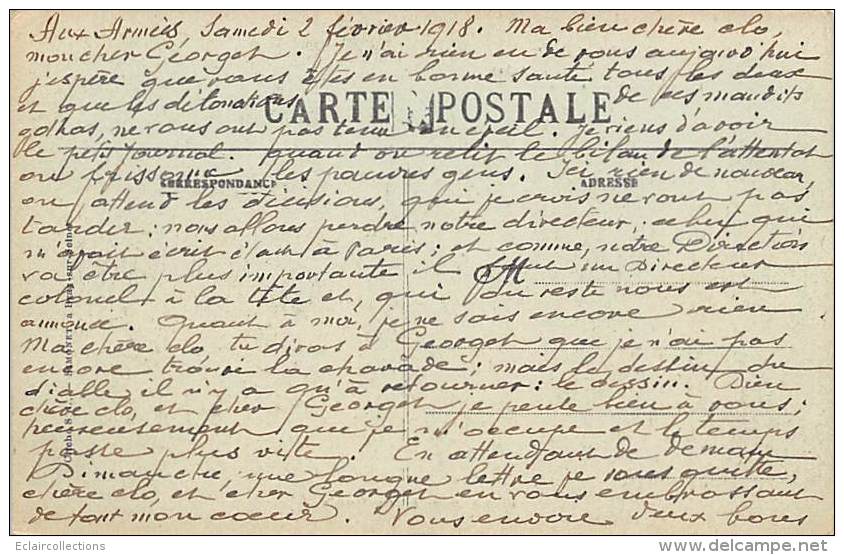 Aux Armées, Samedi 2 février 1918. Ma bien chère clo,
mon cher Georget. Je n'ai rien eu de vous aujourd'hui
j'espère que vous êtes en bonne santé tous les deux
et que les détonations de ces maudits
CARTE POSTALE
gothas, ne vous ont pas tenu en éveil. Je viens d'avoir
le petit Journal. quand on relit le bilan de l'attentat
on frissonne les pauvres gens. Ici rien de nouveau,
CORRESPONDANCE ADRESSE
on attend les décisions, qui je crois ne vont pas
tarder; nous allons perdre notre directeur, celui qui
m'avait écrit étant à Paris; et comme, notre Direction
va être plus importante il faut un Directeur
colonel à la tête et, qui du reste nous est
annoncé. Quant à moi, je ne sais encore rien
Ma chère clo, tu diras à Georget que je n'ai pas
encore trouvé la charade; mais le dessin du
diable, il n'y a qu'à retourner: le dessin. Bien
chère clo, et cher Georget je pense bien à vous;
heureusement que je m'occupe et le temps
passe plus vite. En attendant de demain
Dimanche, une longue lettre je vous quitte,
chère clo, et cher Georget en vous embrassant
de tout mon cœur. Vous envoie deux bons
Eclaircollections
www.delcampe.net